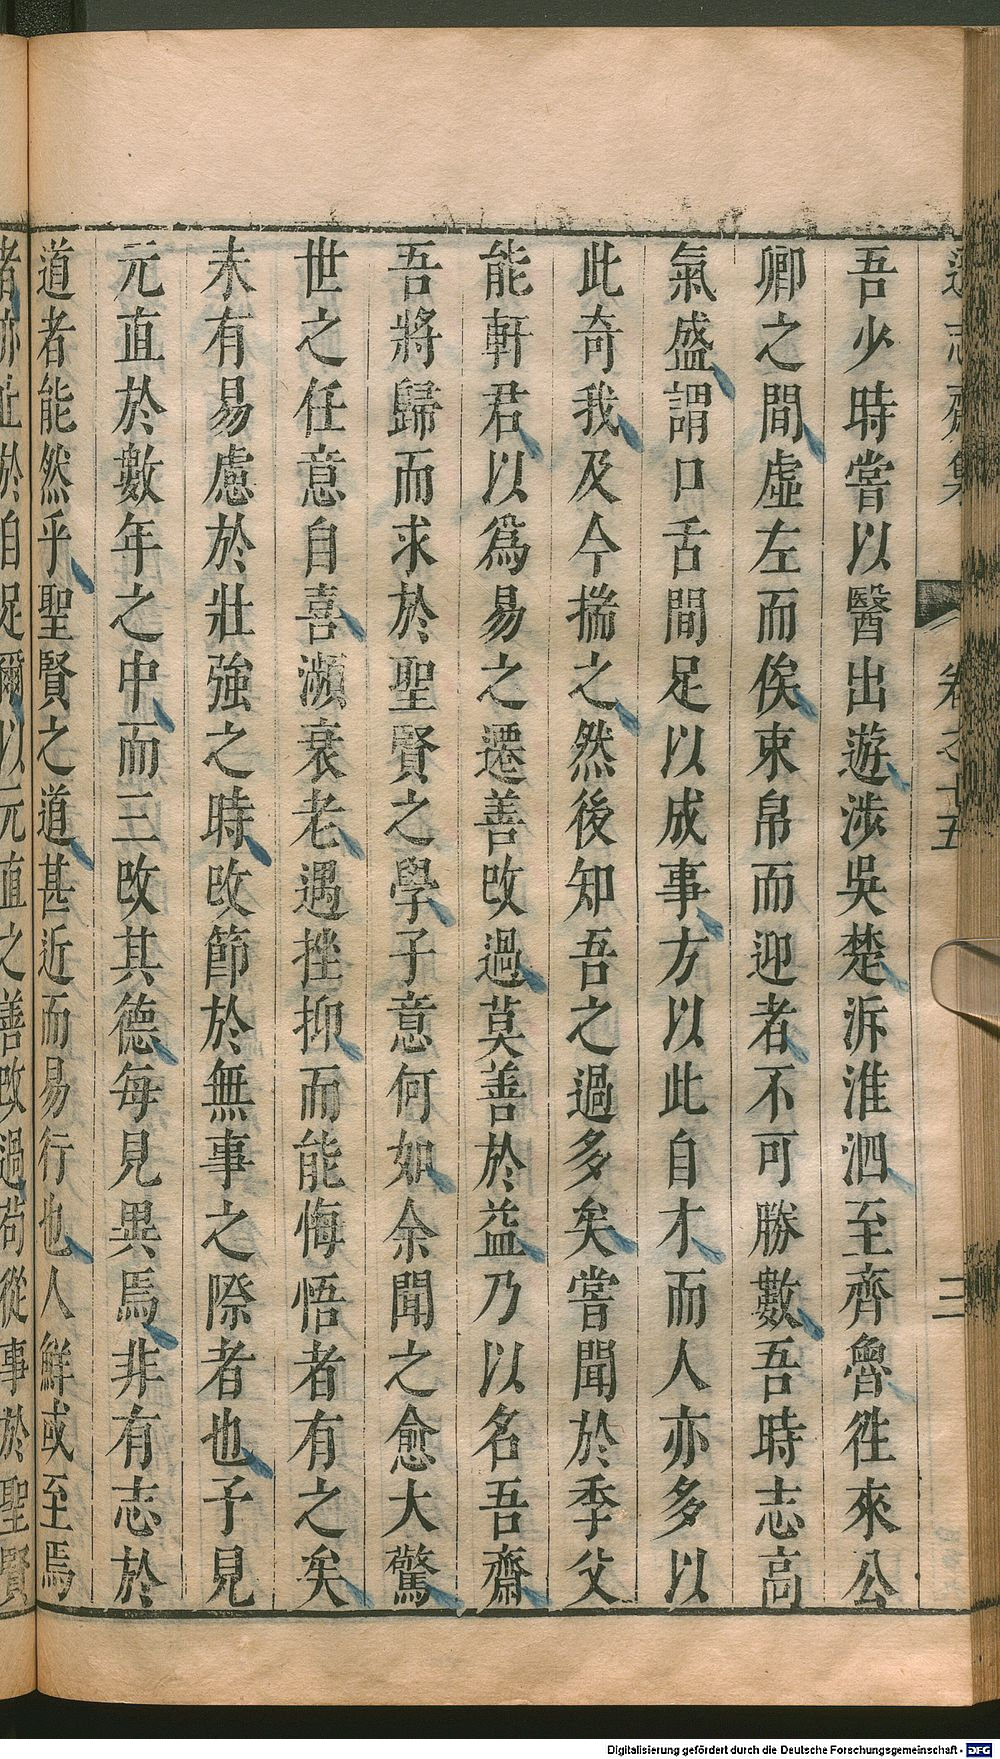 吾少時嘗以醫出遊涉吳楚泝淮泗至齊魯徃來公
卿之間虛左而俟束帛而迎者不可勝數吾時志高
氣盛謂口舌間足以成事方以此自才而人亦多以
此奇我及今揣之然後知吾之過多矣嘗聞於季父
能軒君以爲易之遷善改過莫善於益乃以名吾齋
吾將歸而求於聖賢之學子意何如余聞之愈大驚
世之任意自喜瀕衰老遇挫抑而能悔悟者有之矣
未有易慮於壯強之時改節於無事之際者也予見
元直於數年之中而三改其德每見異焉非有志於
道者能然乎聖賢之道甚近而易行也人鮮或至焉
者亦止於自足爾以元直之善改過茍從事於聖賢
志齋集
卷之十五
三
Digitalisierung gefördert durch die Deutsche Forschungsgemeinschaft - DFG